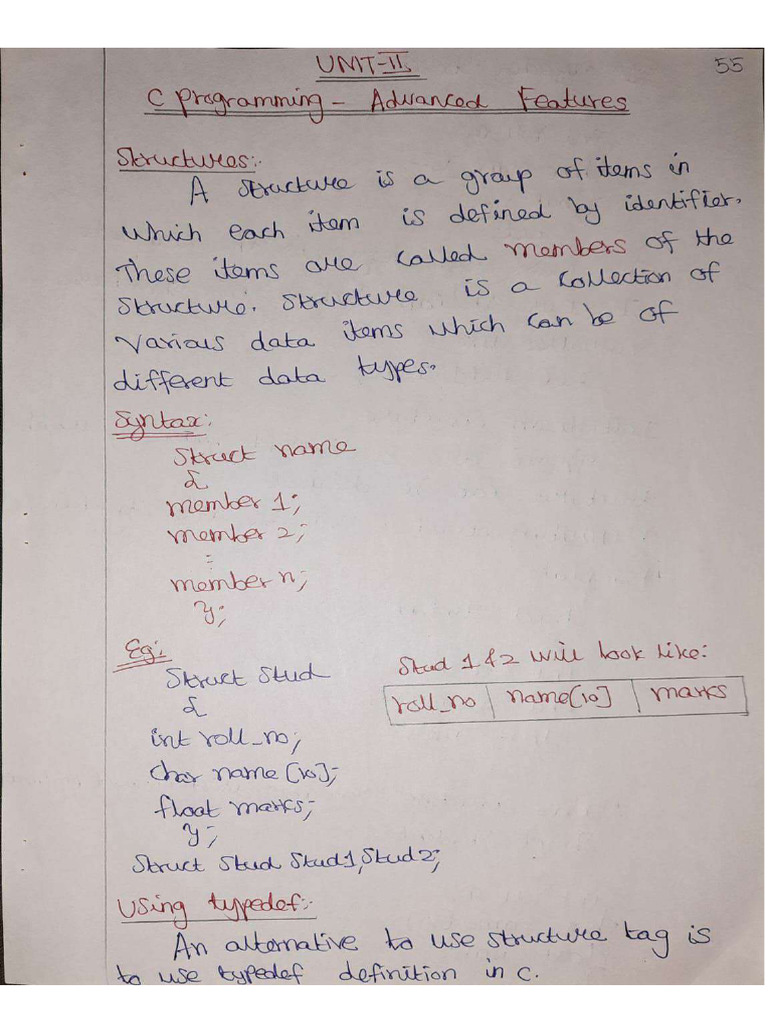 UNIT-II
55
C Programming - Advanced Features
Structures:-
A structure is a group of items in
which each item is defined by identifier.
These items are called members of the
structure. Structure is a collection of
various data items which can be of
different data types.
Syntax:
Struct name
{
member 1;
member 2;
:
member n;
};
Eg:
Struct Stud
{
int roll_no;
char name [10];
float marks;
};
Struct Stud Stud1, Stud2;
Stud 1 & 2 will look like:
roll_no | name[10] | marks
Using typedef:-
An alternative to use structure tag is
to use typedef definition in c.